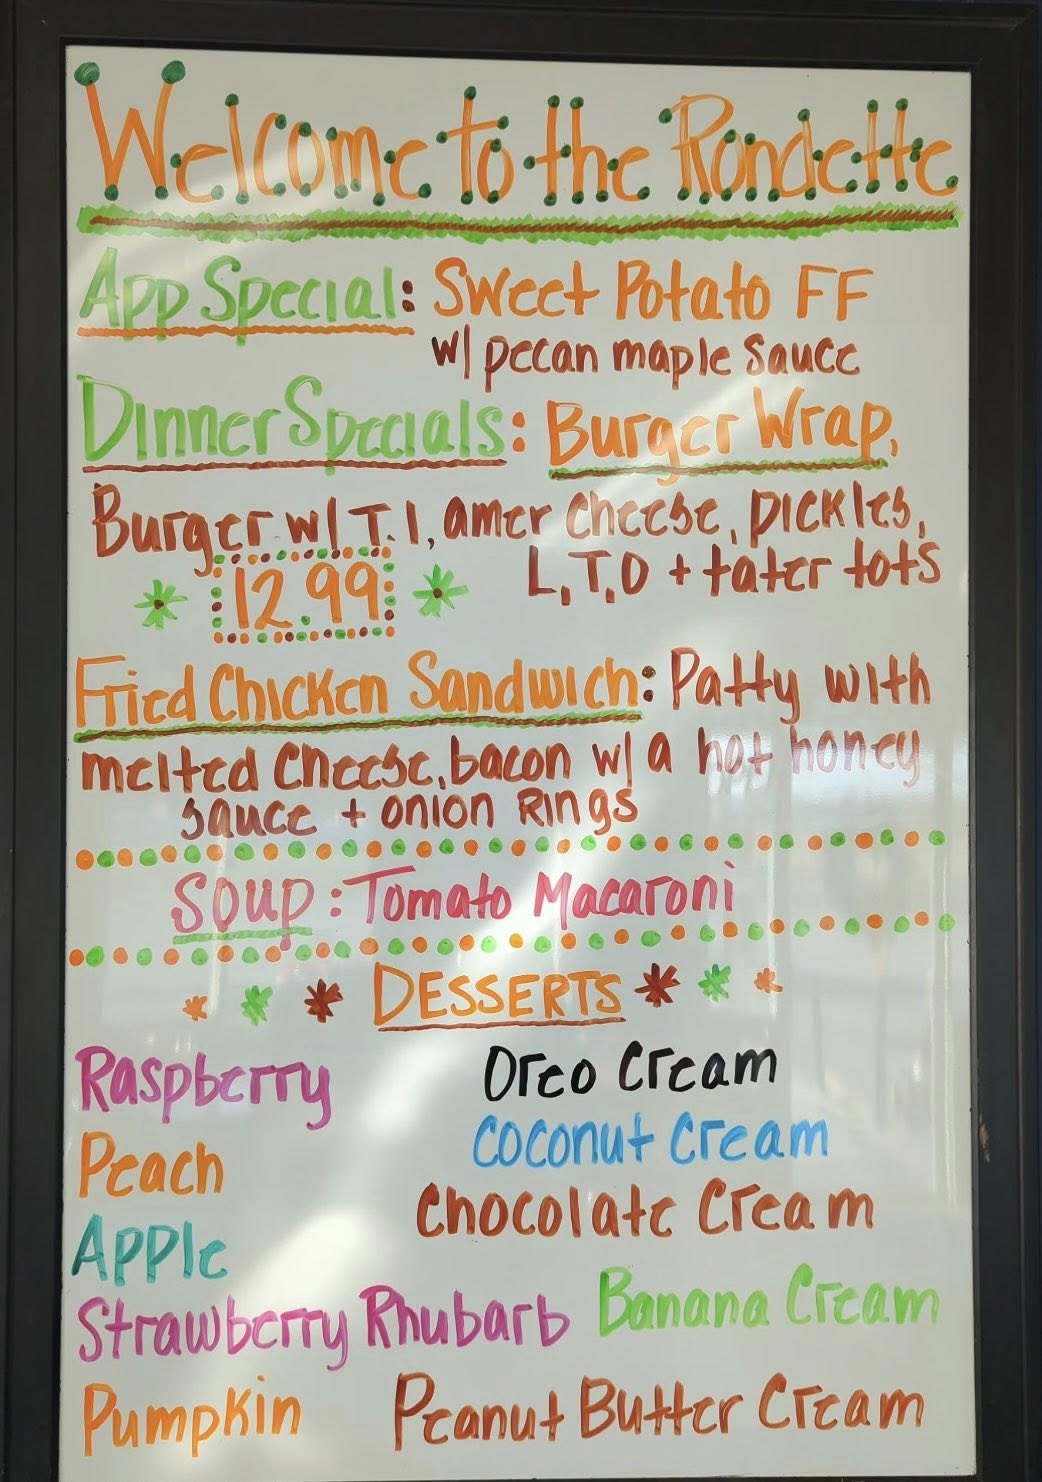 Welcome to the Rondette
App Special: Sweet Potato FF
w/ pecan maple sauce
Dinner Specials: Burger Wrap,
Burger w/ T.I, amer cheese, pickles,
L,T,O + tater tots
12.99
Fried Chicken Sandwich: Patty with
melted cheese, bacon w/ a hot honey
sauce + onion rings
Soup: Tomato Macaroni
DESSERTS
Raspberry
Oreo Cream
Peach
Coconut Cream
Apple
Chocolate Cream
Strawberry Rhubarb
Banana Cream
Pumpkin
Peanut Butter Cream